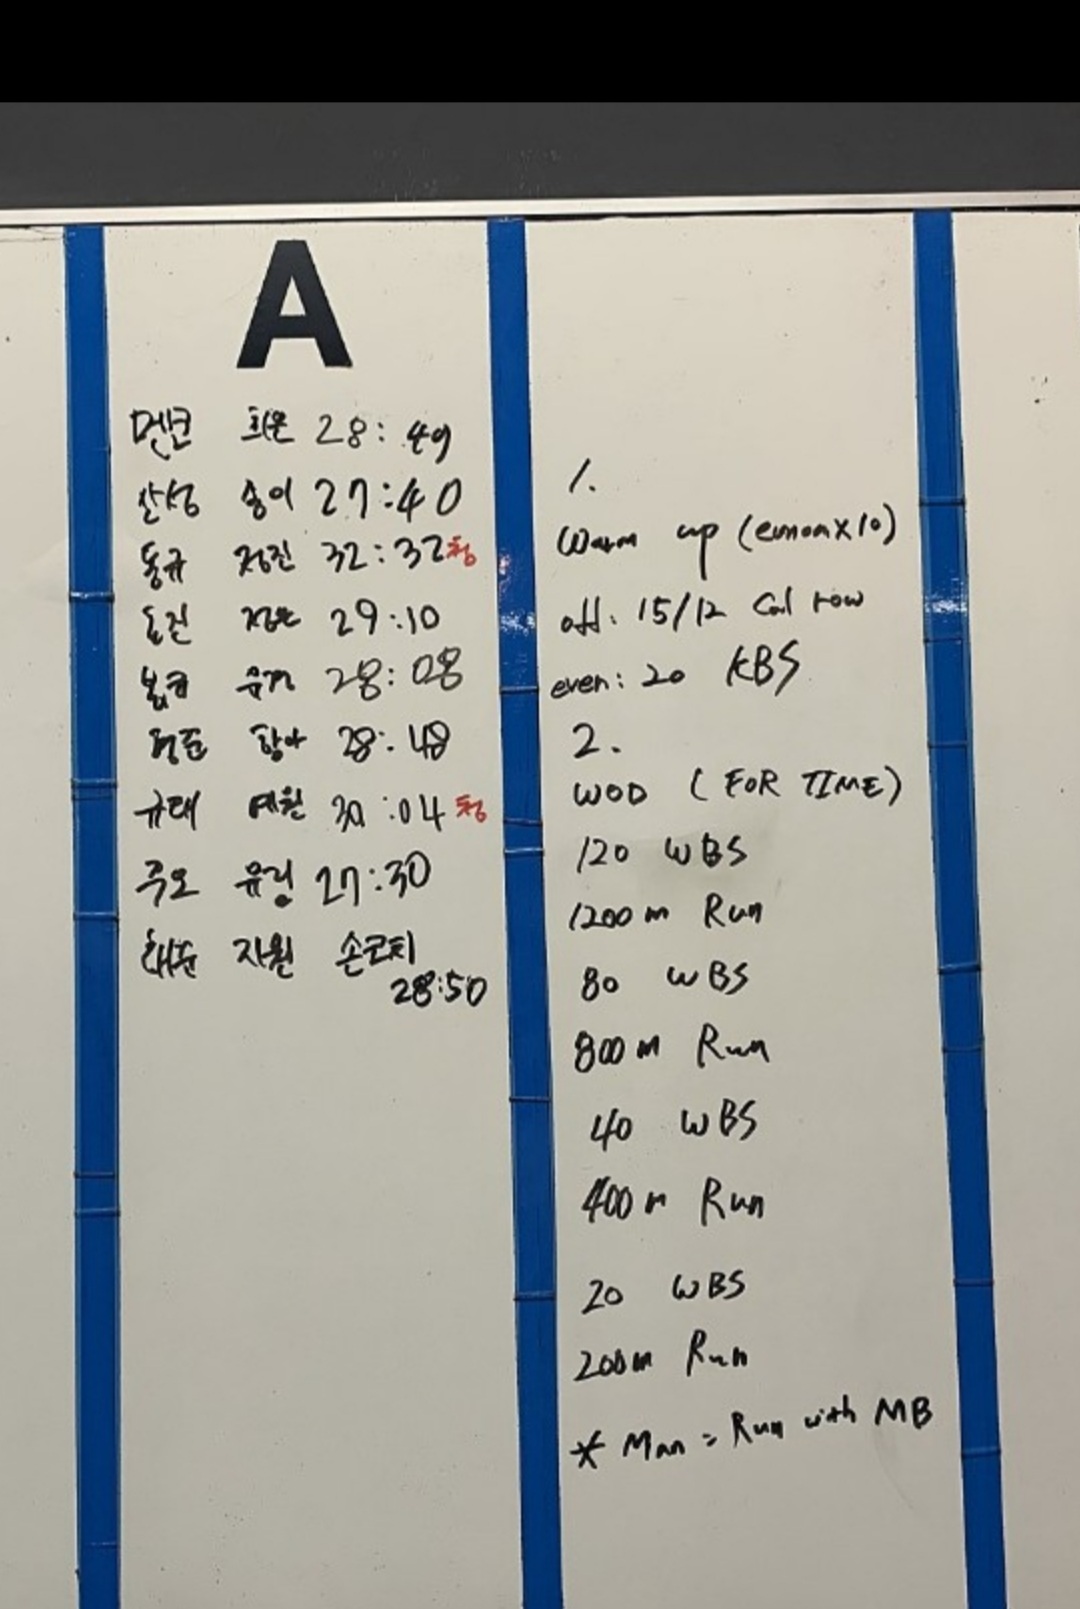 A
멘코 희운 28:49
산성 송이 27:40
동규 정진 32:32 청
도건 정는 29:10
봄코 유정 28:08
명준 항아 28:48
규태 예원 30:04 청
주오 유림 27:30
해준 자원 손코치
28:50
1.
Warm up (emomx10)
odd: 15/12 Cal row
even: 20 KBS
2.
WOD (FOR TIME)
120 WBS
1200m Run
80 WBS
800m Run
40 WBS
400m Run
20 WBS
200m Run
* Man = Run with MB